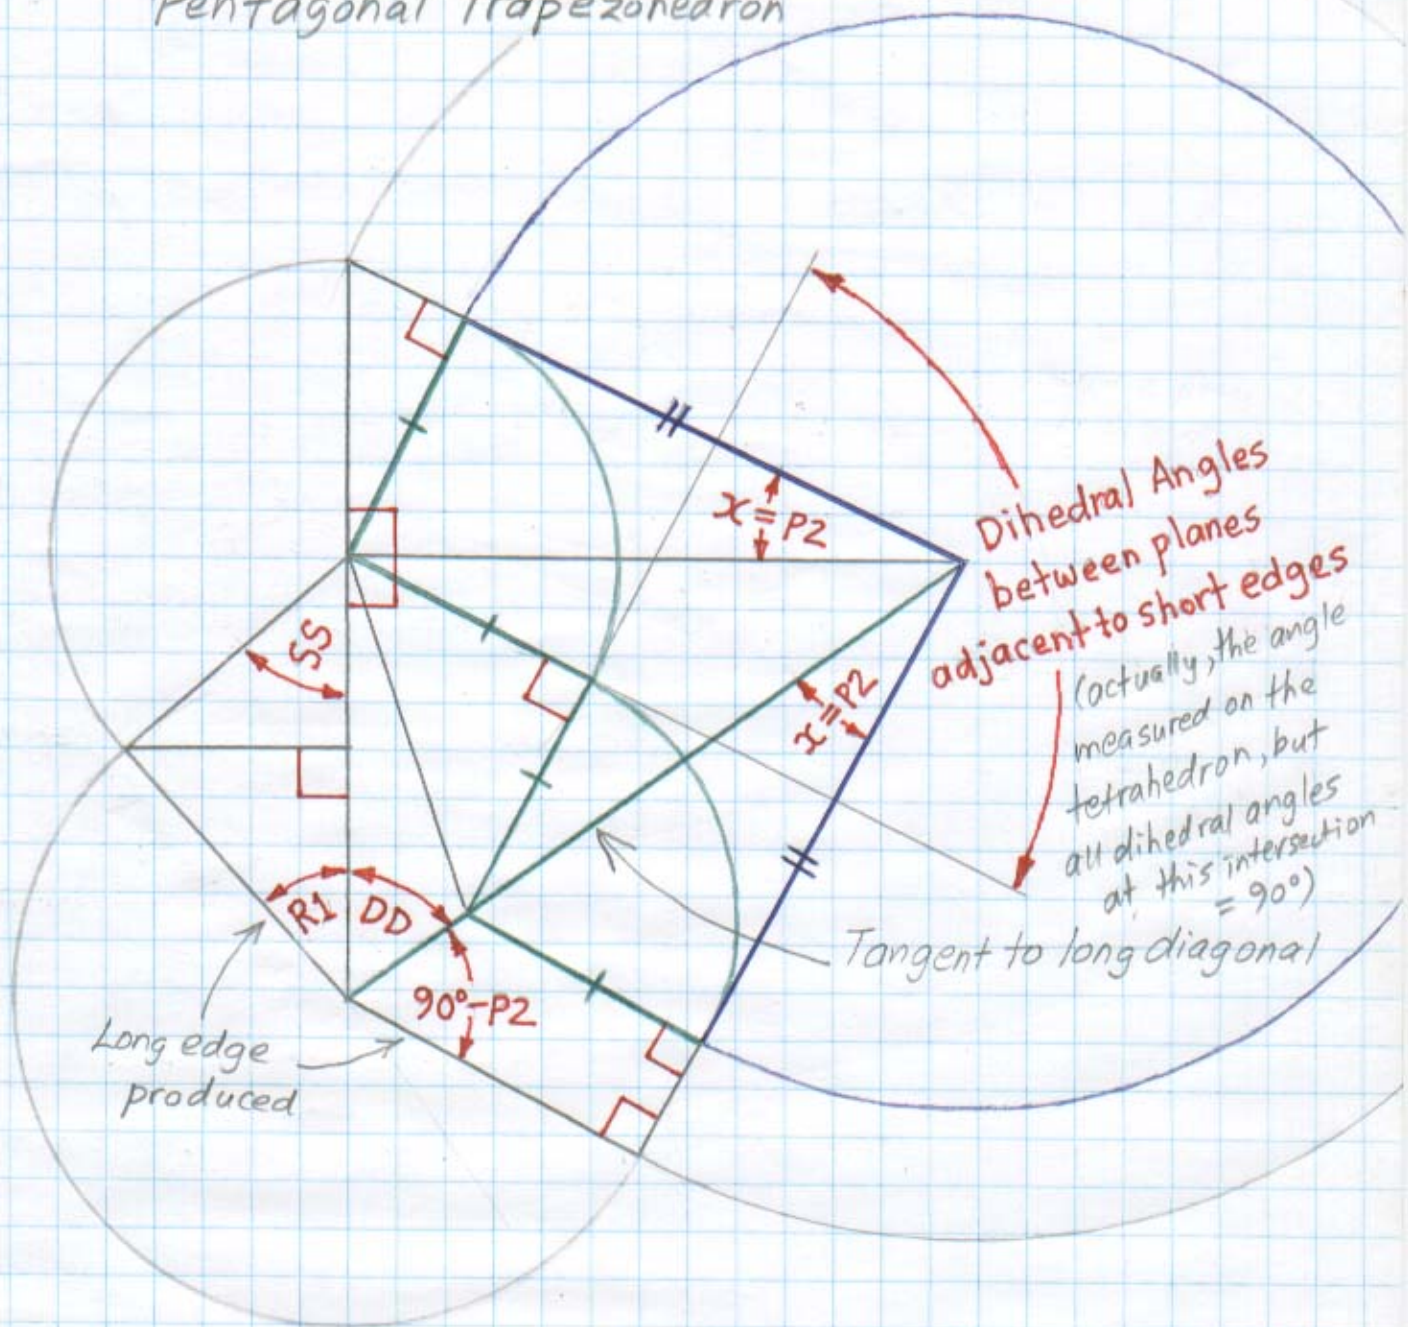 Pentagonal Trapezohedron
x=P2
Dihedral Angles
between planes
adjacent to short edges
(actually, the angle
measured on the
tetrahedron, but
all dihedral angles
at this intersection
= 90°)
SS
x=P2
R1
DD
90°-P2
Tangent to long diagonal
Long edge
produced